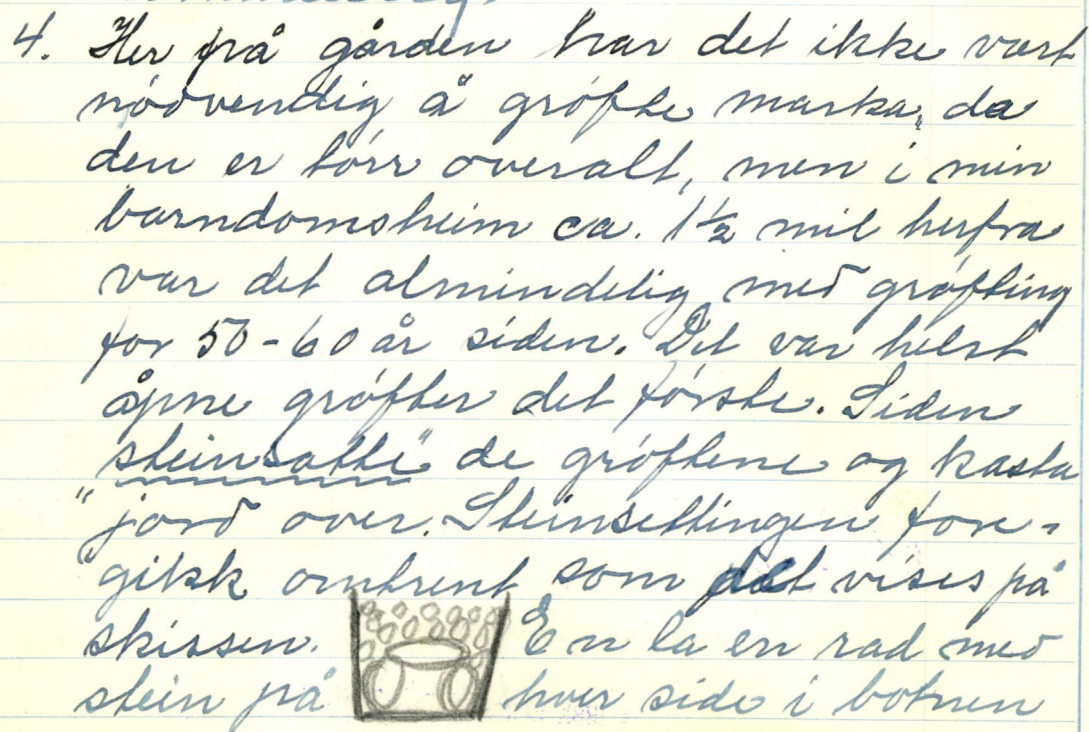 4. Her frå gården har det ikke vært
nödvendig å gröfte marka, da
den er törr overalt, men i min
barndomsheim ca. 1½ mil herfra
var det almindelig med gröfting
for 50-60 år siden. Det var helst
åpne gröfter det förste. Siden
"steinsatte" de gröftene og kasta
jord over. Steinsettingen fore-
gikk omtrent som det vises på
skissen. En la en rad med
stein på hver side i botnen